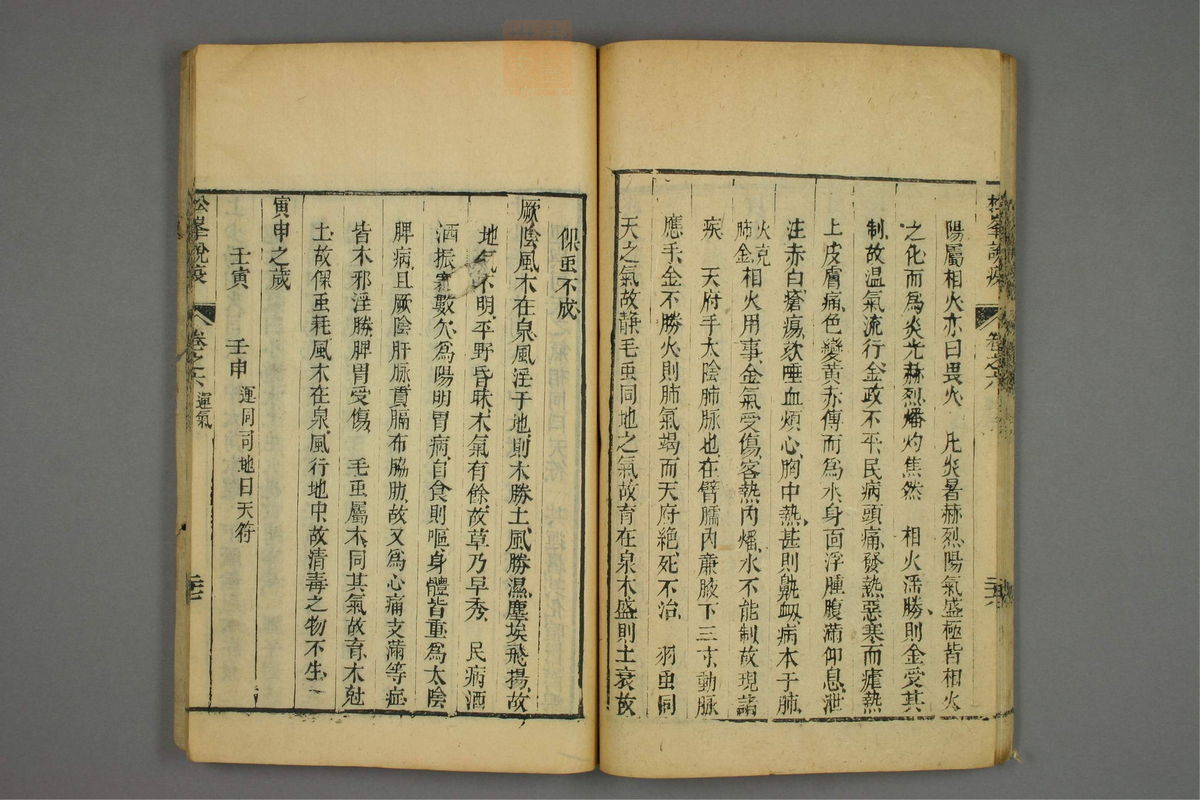 松峯說疫 卷之六 二十六
陽屬相火亦曰畏火 凡炎暑赫烈陽氣盛極皆相火
之化而爲炎光赫烈燔灼焦然 相火潘勝則金受其
制故温氣流行金政不平民病頭痛發熱惡寒而瘧熱
上皮膚痛色變黄赤傳而爲水身面浮腫腹滿仰息泄
注赤白瘡瘍欬唾血煩心胸中熱甚則鼽衂病本于肺
火克肺金相火用事金氣受傷客熱内燔水不能制故現諸
疾 天府手太陰肺脉也在臂臑内亷腋下三寸動脉
應手金不勝火則肺氣竭而天府絶死不治 羽虫同
天之氣故静毛虫同地之氣故育在泉木盛則土衰故
倮虫不成
厥陰風木在泉風淫于地則木勝土風勝濕塵埃飛揚故
地氣不明平野昏昧木氣有餘故草乃早秀 民病洒
洒振寒數欠爲陽明胃病自食則嘔身體皆重爲太陰
脾病且厥陰肝脉貫膈布脇肋故又爲心痛支滿等症
皆木邪淫勝脾胃受傷 毛虫屬木同其氣故育木尅
土故倮虫耗風木在泉風行地中故清毒之物不生
寅申之歲
壬寅 壬申 運同司地曰天符
松峯說疫 卷之六 運氣 二十七